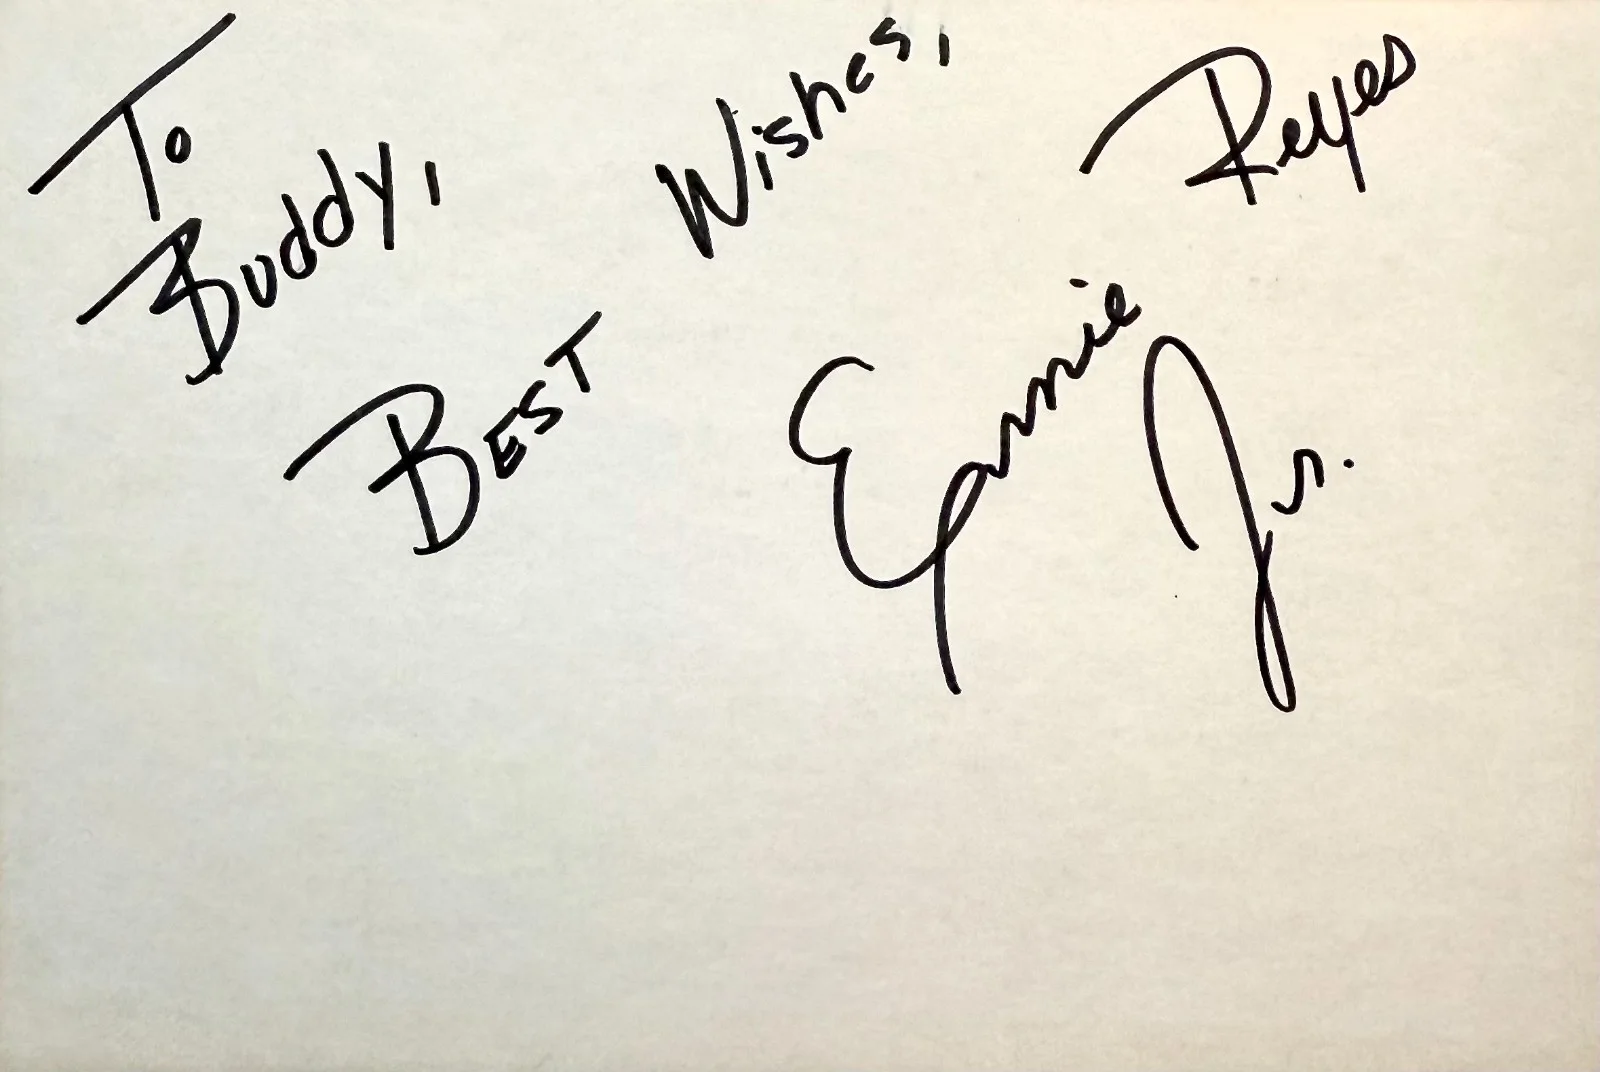 To
Buddy,
Best Wishes,
Ernie Reyes
Jr.